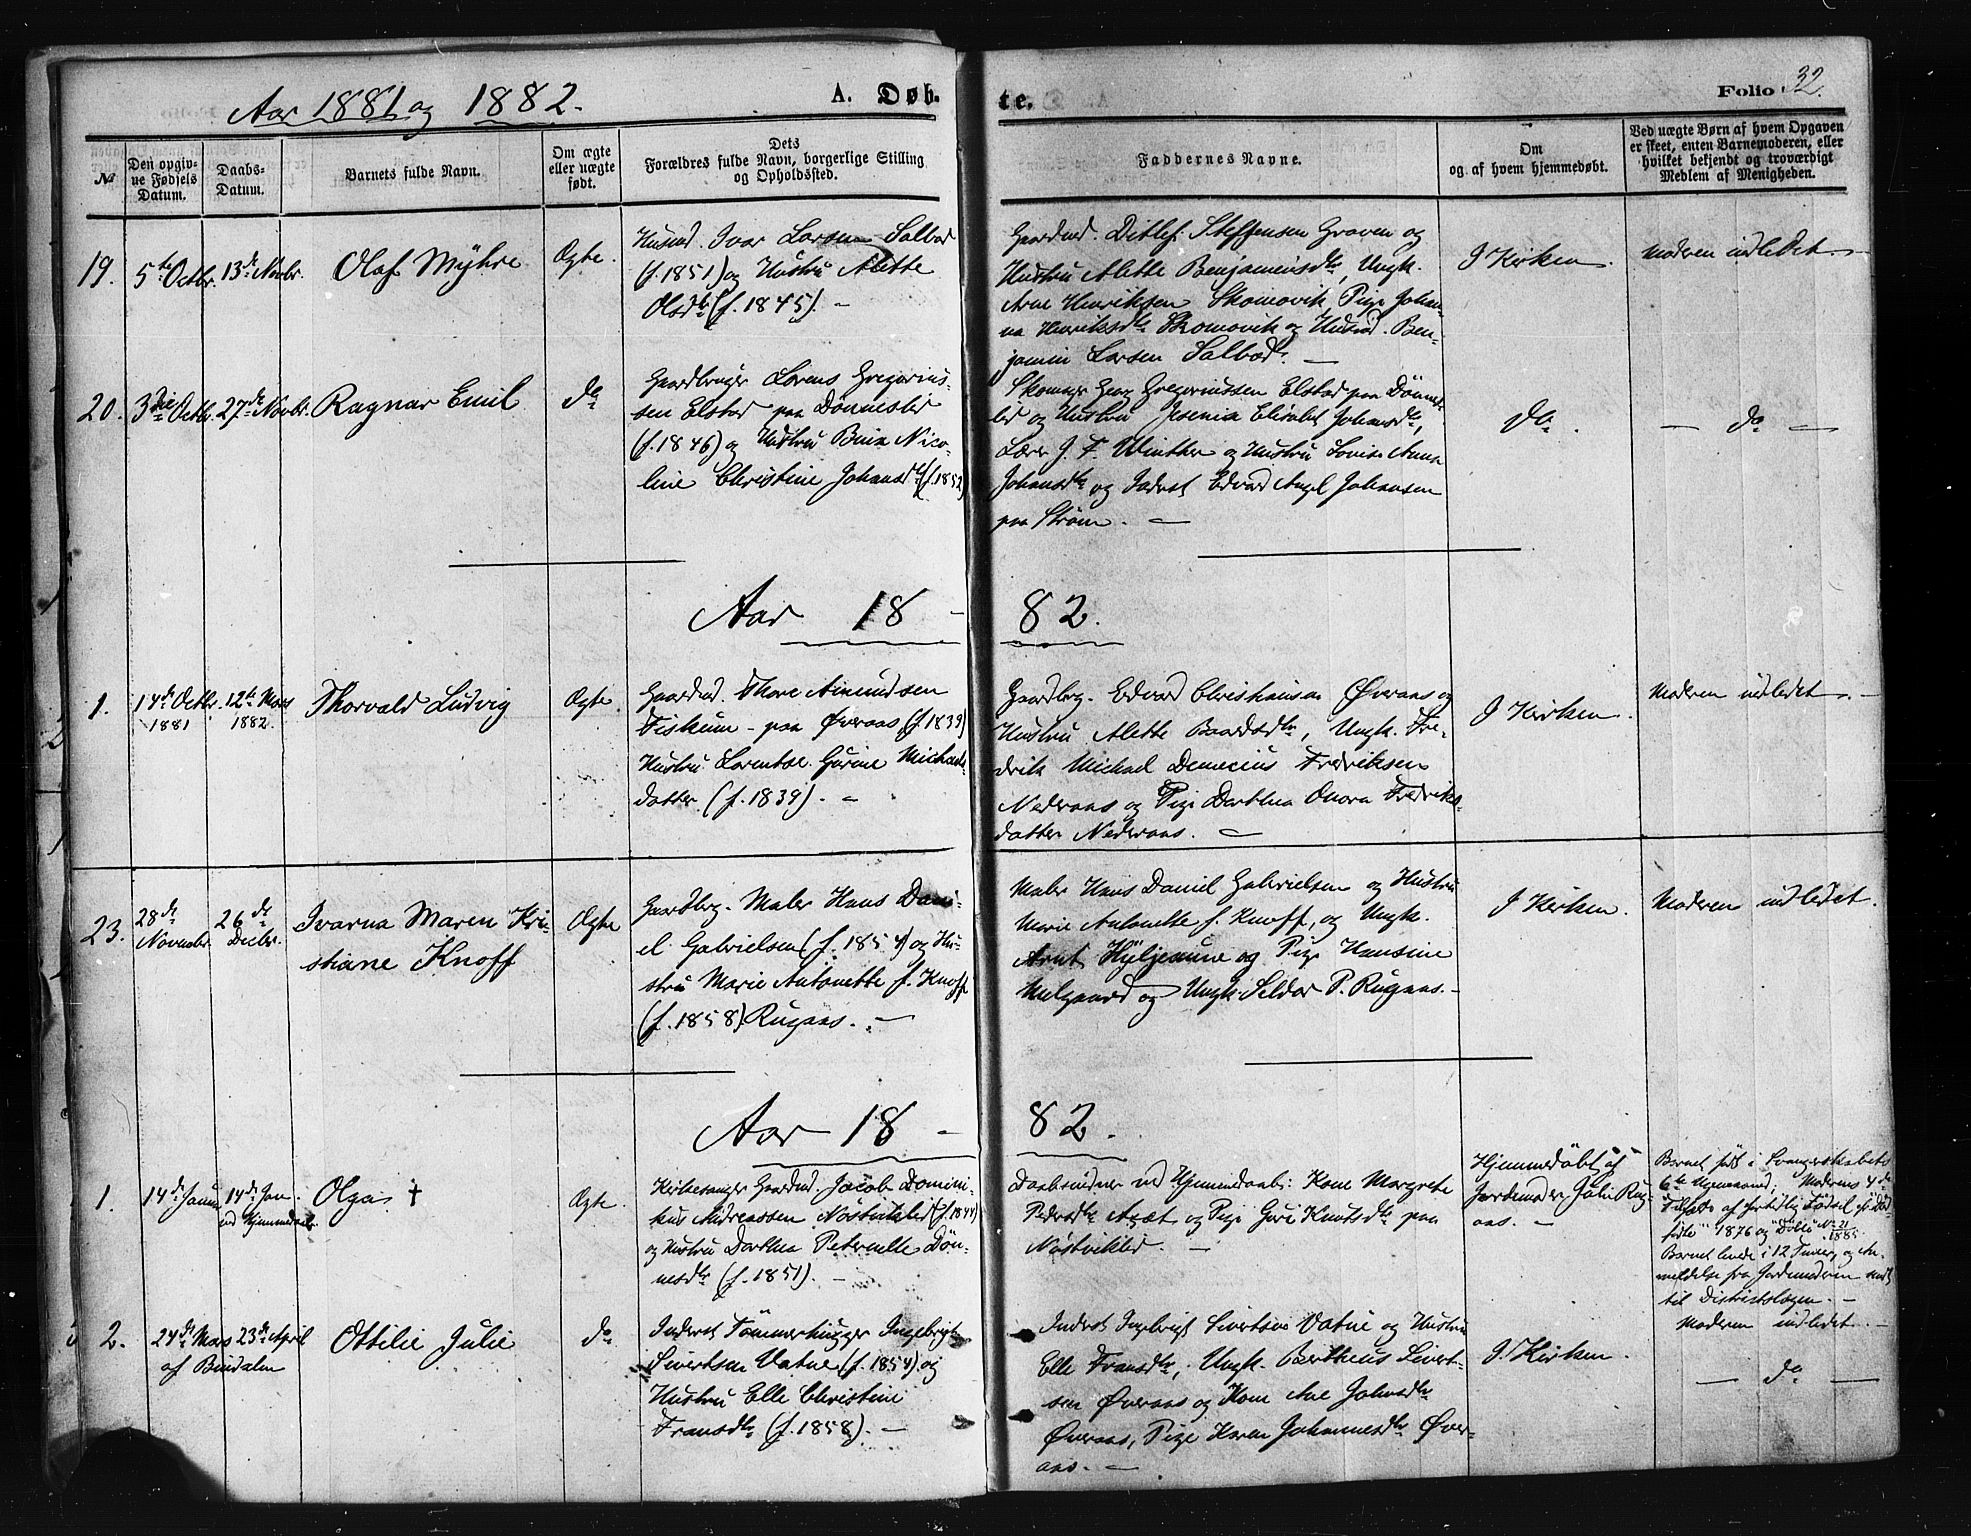 Aar 1881 og 1882.
A. Døb-
te.
Folio 32.
№
Den opgiv-
ne Fødsels
Datum.
Daabs-
Datum.
Barnets fulde Navn.
Om ægte
eller uægte
født.
Dets
Forældres fulde Navn, borgerlige Stilling
og Opholdssted.
Faddernes Navne.
Om
og af hvem hjemmedøbt.
Ved uægte Børn af hvem Opgaven
er skeet, enten Barnemoderen, eller
hvilket bekjendt og troværdigt
Medlem af Menigheden.
19.
5te Octbr.
13de Novbr.
Olaf Myhre
Ægte.
Husmd. Ivar Larsen Salbod
(f. 1851) og Hustru Alette
Olsdtr (f. 1845). –
Gaardmd. Ditlef Steffensen Graven og
Hustru Alette Benjaminsdtr, Ungk.
Arne Henriksen Skomovik, Pige Johan-
na Henriksdtr Skomovik og Husmd. Ben-
jamin Larsen Salbod. —
I Kirken.
Moderen indledet. –
20.
3die Octbr.
27de Novbr.
Ragnar Emil
do
Gaardbruger Lorens Gregorius-
sen Elstad paa Dønneslid
(f. 1846) og Hustru Nico-
line Christine Johansdtr (f. 1852)
Gregoriussen Elstad paa Dønnes-
lid og Hustru Jesenia Elisabet Johansdtr,
Lærer J. F. Winther og Hustru Lovise Anna
Johansdtr og Inderst Edvard Johansen
paa Strøm. —
do.
— do —
Aar 18 –
82.
1.
14de Octbr.
1881
12te Mars
1882.
Thorvald Ludvig
Ægte.
Gaardmd. Thore Amundsen
Fiskum – paa Øveraas (f. 1839)
Hustru Lorentse Gurine Michaels-
datter (f. 1839). –
Gaardbrg. Edvard Christiansen Øveraas og
Hustru Alette Baardsdtr, Ungk. Fre-
drik Michael Demecius Fredriksen
Nederaas og Pige Dorthea Onora Fredriks-
datter Nederaas. —
I Kirken.
Moderen indledet. –
23.
28de
Novembr.
26de
Decbr.
Ivarna Maren Kri-
stiane Knoff
Ægte
Gaardbrg. Maler Hans Dani-
el Gabrielsen (f. 1854) og Hu-
stru Marie Antonette f. Knoff
(f. 1858) Rugaas. –
Maler Hans Daniel Gabrielsen og Hustru
Marie Antonette f. Knoff, og Ungk.
Arnt og Pige Hansine
og Ungk. Seldor P. Rugaas. –
I Kirken.
Moderen indledet.
Aar 18 –
82.
1.
14de Januar
14de Jan.
ved Hjemmedaab.
Olga. †
Ægte.
Kirkesanger Gaardmd. Jacob Domini-
kus Andreassen Nøstviklid (f. 1844)
og Hustru Dorthea Peternelle Døn-
nesdtr (f. 1851). –
Daabsvidner ved Hjemmedaab: Kone Margrete
Pedersdtr og Pige Guri Knutsdtr paa
Nøstviklid. –
Hjemmedøbt af
Jordemoder Julie Rug-
aas. –
Barnet født i Svangerskabets
6te Maaned. Moderens 4de
Tilfælde af fortidlig Fødsel
1876 og "Døbte" № 21
1885.
Barnet levede i 12 Timer og An-
meldelse fra Jordemoderen sendt
til Districtslægen. –
Moderen indledet. –
2.
24de Mars
af Bindalen
23de April
Ottilie Julie
do.
Inderst Tømmerhugger Ingebrigt
Sivertsen Vatne (f. 1854) og
Hustru Elle Christine
Fransdtr (f. 1858). –
Inderst Ingebrigt Sivertsen Vatne og Hustru
Elle Fransdtr, Ungk. Bertheus Sivert-
sen Øveraas og Kone Ane Johnsdtr
Øveraas, Pige Karen Johannesdtr Øver-
aas. –
I Kirken.
— do —